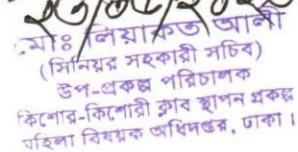 ২৩/০৮/২০২২
মোঃ লিয়াকত আলী
(সিনিয়র সহকারী সচিব)
উপ-প্রকল্প পরিচালক
কিশোর-কিশোরী ক্লাব স্থাপন প্রকল্প
মহিলা বিষয়ক অধিদপ্তর, ঢাকা।